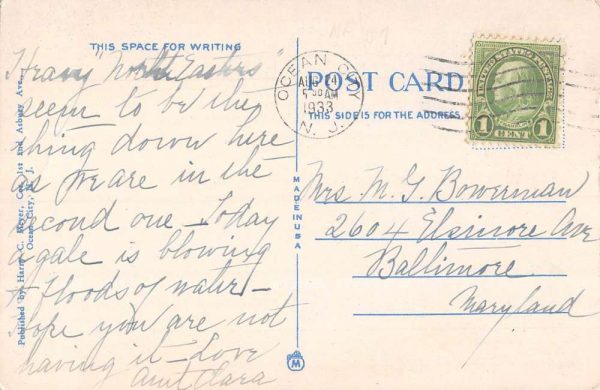 THIS SPACE FOR WRITING
Heavy "North Easters"
seem to be the
thing down here
as we are in the
second one - Today
a gale is blowing
+ floods of water -
hope you are not
having it - Love
Aunt Clara
Published by Harry C. Meyer, Cor. 1st and Asbury Ave.,
Ocean City, N. J.
MADE IN USA
M
POST CARD
THIS SIDE IS FOR THE ADDRESS
OCEAN CITY
AUG 24
5 30 AM
1933
N. J.
UNITED STATES POSTAGE
FRANKLIN
1 CENT 1
Mrs. M. G. Bowerman
2604 Elsinore Ave
Baltimore
Maryland